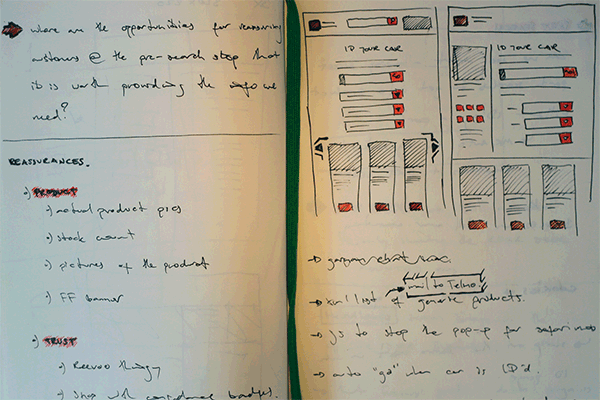 where are the opportunities for reassuring
customers @ the pre-search step that
it is worth providing the info we
need?
REASSURANCES.
PRODUCT
actual product pics
stock count
pictures of the product
FF banner
TRUST
Reevoo thingy
shop with confidence badges.
ID YOUR CAR
ID YOUR CAR
mail to Telmo
xml list of generic products.
JS to stop the pop-up for
auto "go" when car is ID'd.